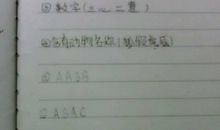 ③数字(三心二意)
④含有动物名称(狐假虎威)
⑤AABB
⑥ABAC